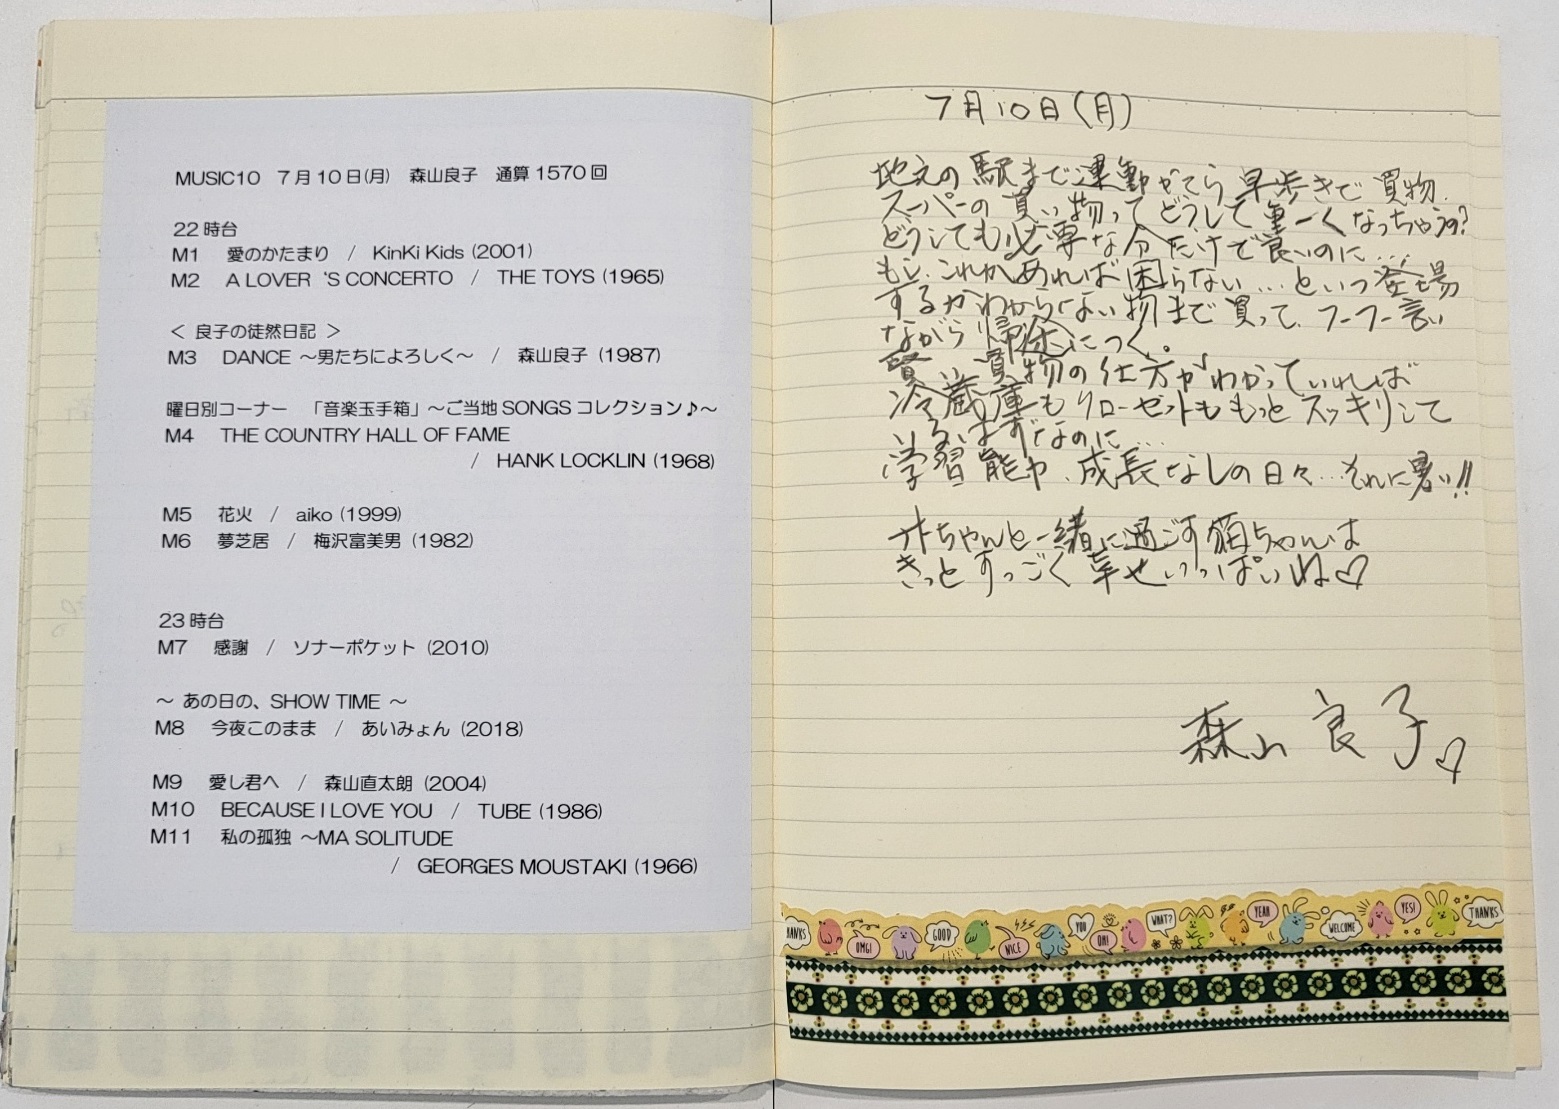 MUSIC10 7月10日(月) 森山良子 通算1570回
22時台
M1 愛のかたまり / KinKi Kids (2001)
M2 A LOVER 'S CONCERTO / THE TOYS (1965)
＜ 良子の徒然日記 ＞
M3 DANCE ～男たちによろしく～ / 森山良子 (1987)
曜日別コーナー 「音楽玉手箱」～ご当地SONGSコレクション♪～
M4 THE COUNTRY HALL OF FAME
/ HANK LOCKLIN (1968)
M5 花火 / aiko (1999)
M6 夢芝居 / 梅沢富美男 (1982)
23時台
M7 感謝 / ソナーポケット (2010)
～ あの日の、SHOW TIME ～
M8 今夜このまま / あいみょん (2018)
M9 愛し君へ / 森山直太朗 (2004)
M10 BECAUSE I LOVE YOU / TUBE (1986)
M11 私の孤独 ～MA SOLITUDE
/ GEORGES MOUSTAKI (1966)
7月10日(月)
地元の駅まで運動がてら早歩きで買物.
スーパーの買い物ってどうして重ーくなっちゃうの?
どうしても必要な分だけで良いのに...
もし、これがあれば困らない...という登場
するかわからない物まで買って、フーフー言い
ながら帰途につく。
賢い買物の仕方がわかっていれば
冷蔵庫もクローゼットももっとスッキリして
いるはずなのに...
学習能力、成長なしの日々...それに暑い!!
赤ちゃんと一緒に過ごす猫ちゃんは
きっとすっごく幸せいっぱいね♡
森山良子♡
HANKS OMG! GOOD NICE YOU OH! WHAT? YEAH WELCOME YES! THANKS